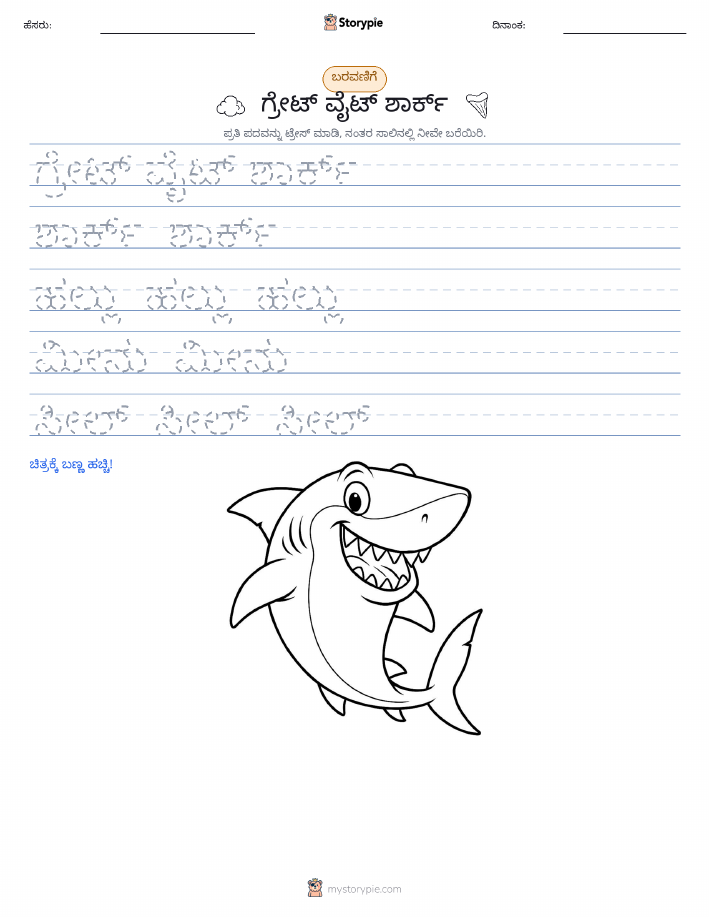 ಹೆಸರು:
Storypie
ದಿನಾಂಕ:
ಬರವಣಿಗೆ
ಗ್ರೇಟ್ ವೈಟ್ ಶಾರ್ಕ್
ಪ್ರತಿ ಪದವನ್ನು ಟ್ರೇಸ್ ಮಾಡಿ, ನಂತರ ಸಾಲಿನಲ್ಲಿ ನೀವೇ ಬರೆಯಿರಿ.
ಗ್ರೇಟ್ ವೈಟ್ ಶಾರ್ಕ್
ಶಾರ್ಕ್ ಶಾರ್ಕ್
ಹಲ್ಲು ಹಲ್ಲು ಹಲ್ಲು
ಮೀನು ಮೀನು
ಸೀಲ್ ಸೀಲ್ ಸೀಲ್
ಚಿತ್ರಕ್ಕೆ ಬಣ್ಣ ಹಚ್ಚಿ!
mystorypie.com